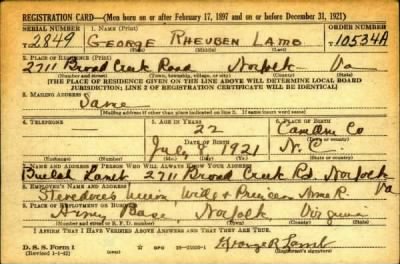 REGISTRATION CARD—(Men born on or after February 17, 1897 and on or before December 31, 1921)
SERIAL NUMBER 1. NAME (Print) ORDER NUMBER
T 2849 GEORGE RHEUBEN LAMB T 10534A
(First) (Middle) (Last)
2. PLACE OF RESIDENCE (Print)
2711 Broad Creek Road Norfolk Va
(Number and street) (Town, township, village, or city) (County) (State)
[THE PLACE OF RESIDENCE GIVEN ON THE LINE ABOVE WILL DETERMINE LOCAL BOARD
JURISDICTION; LINE 2 OF REGISTRATION CERTIFICATE WILL BE IDENTICAL]
3. MAILING ADDRESS
Same
(Mailing address if other than place indicated on line 2. If same insert word same)
4. TELEPHONE 5. AGE IN YEARS 6. PLACE OF BIRTH
22 Camden Co
DATE OF BIRTH
July 8 1921 N.C.
7. NAME AND ADDRESS OF PERSON WHO WILL ALWAYS KNOW YOUR ADDRESS
Beulah Lamb 2711 Broad Creek Rd. Norfolk Va
8. EMPLOYER'S NAME AND ADDRESS
Stevedores Union
9. PLACE OF EMPLOYMENT OR BUSINESS
Army Base, Norfolk Virginia
I AFFIRM THAT I HAVE VERIFIED ABOVE ANSWERS AND THAT THEY ARE TRUE.
D. S. S. Form 1
(Revised 1-1-42) George R Lamb